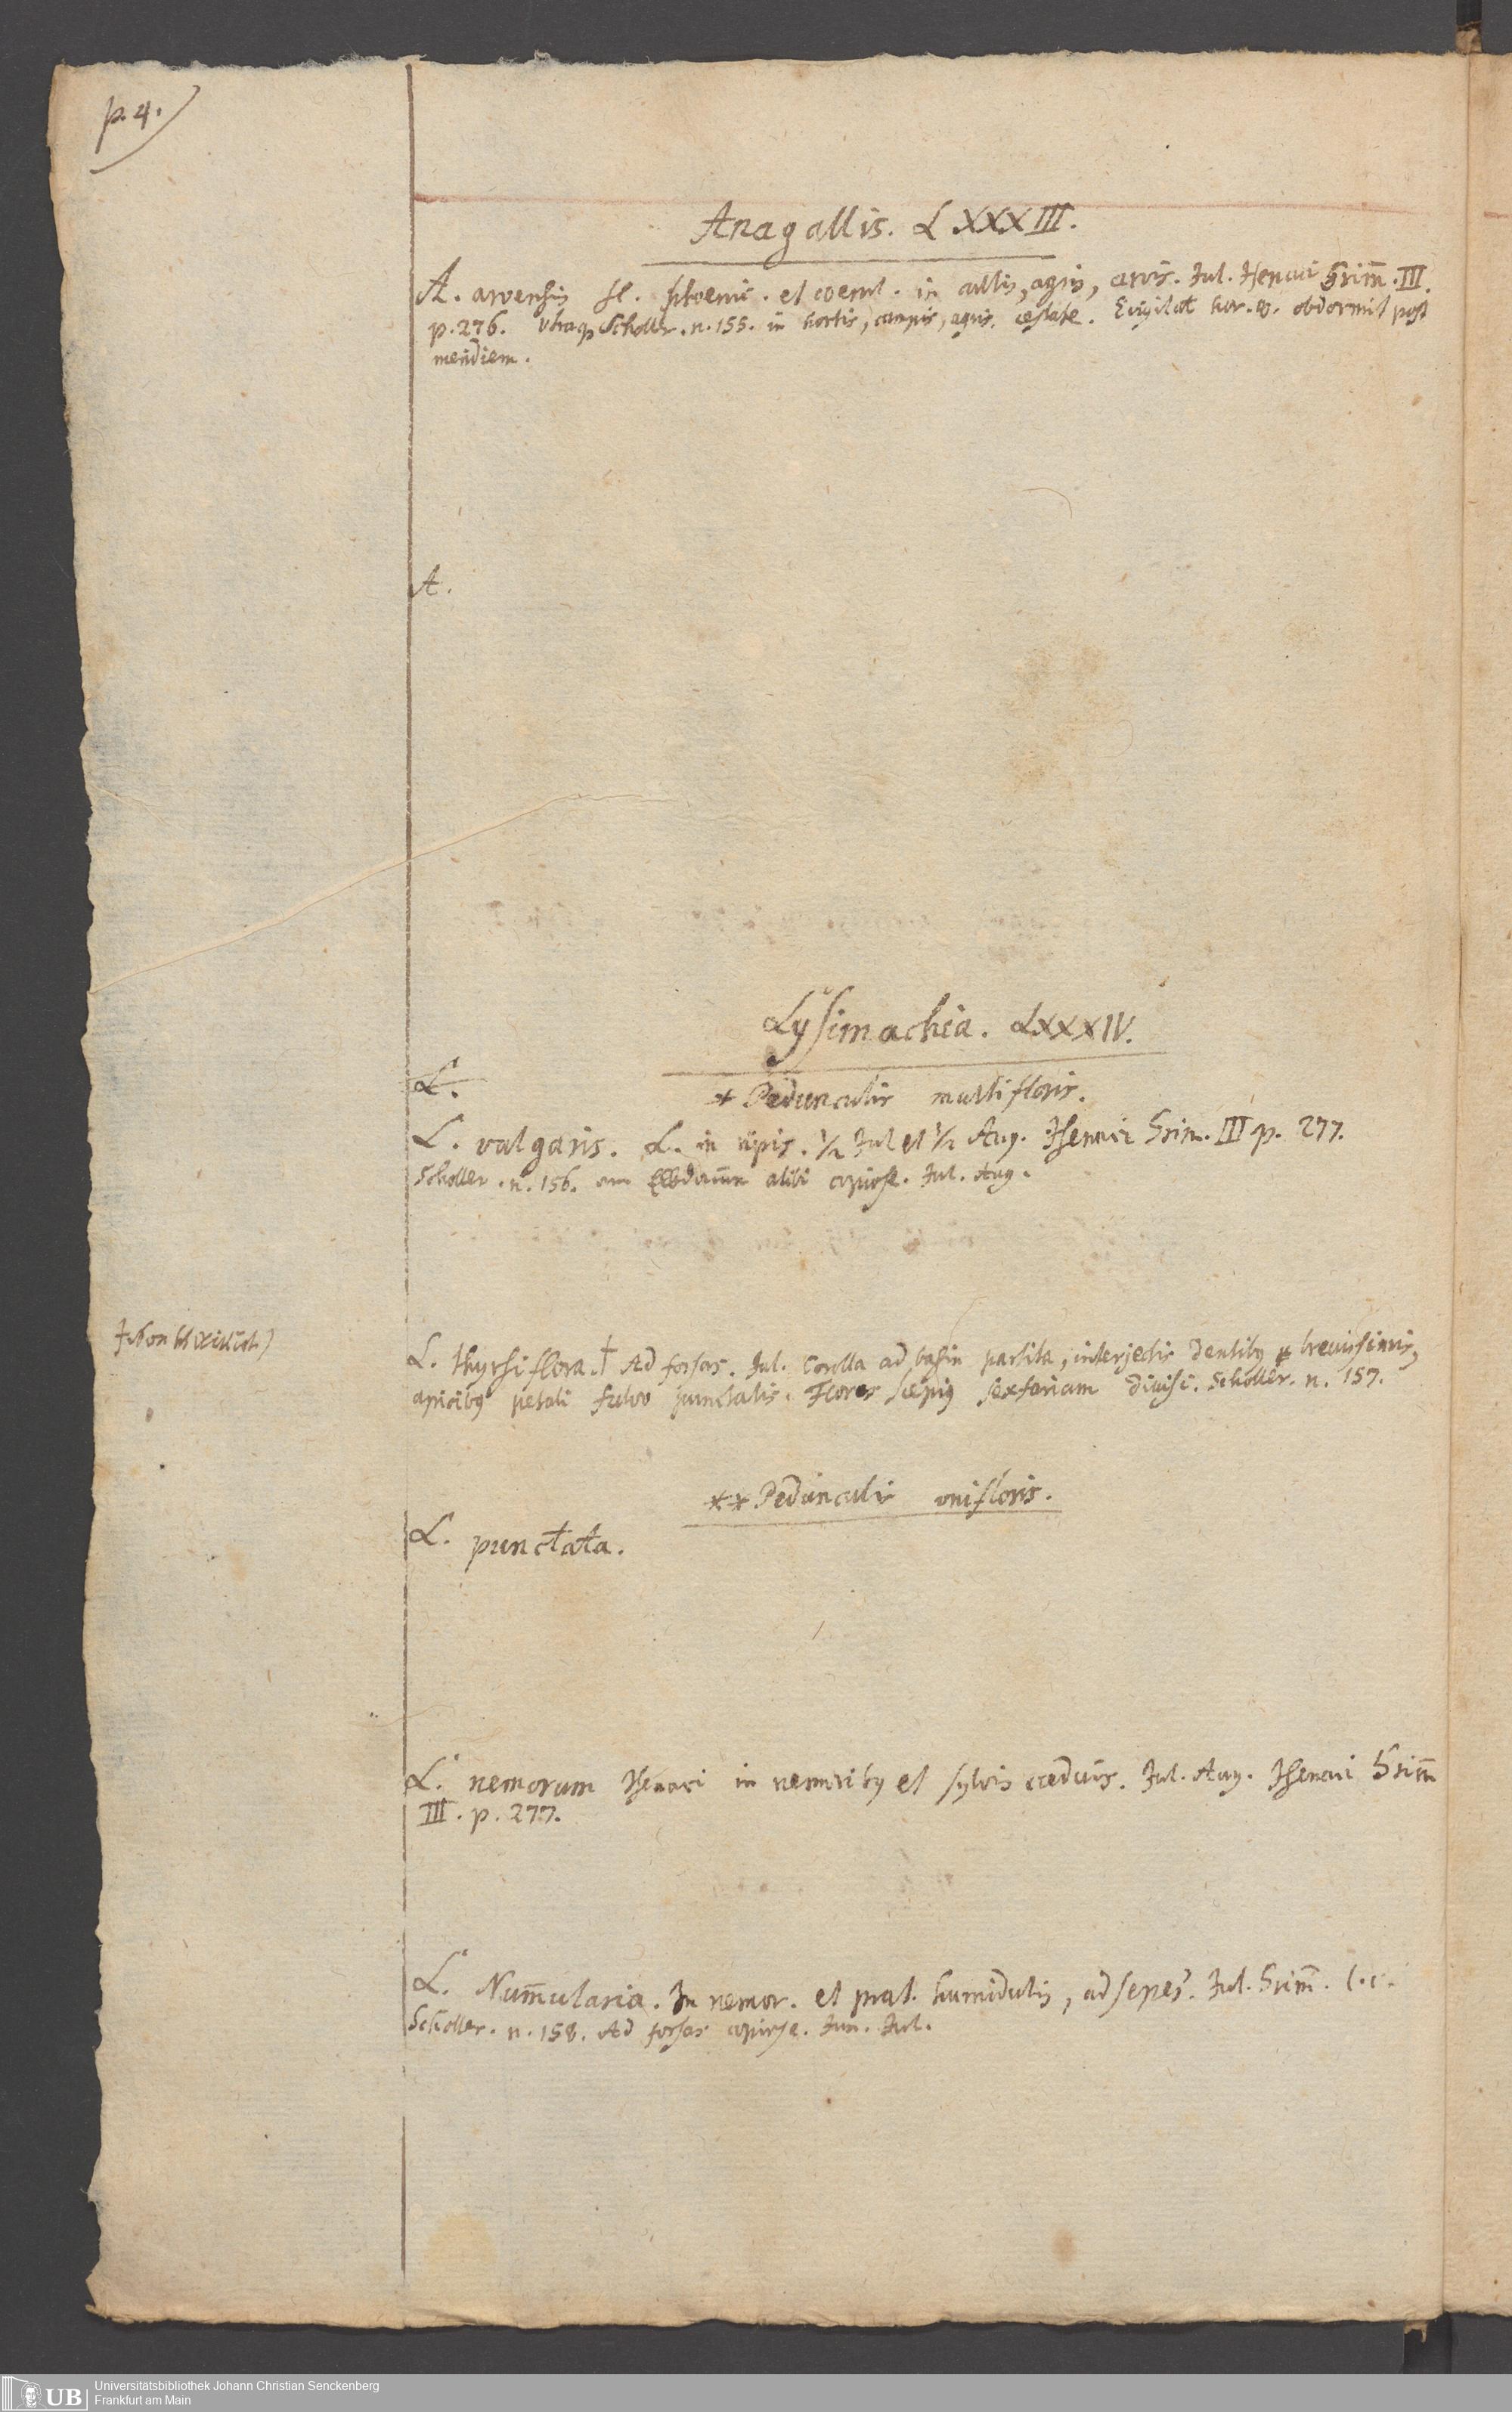 p. 4.
Anagallis. LXXXIII.
A. arvensis fl. phoenic. et coerul. in cultis, agris, arvis. Jul. Isenaci Grim̄. III.
p. 276. utraq Scholler. n. 155. in hortis, campis, agris. aestate. Evigilat hor. 8. obdormit post
meridiem.
A.
Lysimachia. LXXXIV.
L.
* Pedunculis multifloris.
L. vulgaris. L. in ripis. 1/2 Jul et 1/2 Aug. Isenaci Grim. III p. 277.
Scholler. n. 156. alibi copiose. Jul. Aug.
L. thyrsiflora. † Ad fossas. Jul. Corolla ad basin partita, interjectis dentibq brevissimis,
apicibq petali fulvo punctatis. Flores sæpiq sexfariam divisi. Scholler. n. 157.
** Pedunculis unifloris.
L. punctata.
L. nemorum Isenaci in nemoribq et sylvis cæduis. Jul. Aug. Isenaci Grim̄
III. p. 277.
L. Num̄ularia. In nemor. et prat. humidulis, ad sepes. Jul. Grim̄. l. c.
Scholler. n. 158. Ad fossas copiose. Jun. Jul.
UB
Universitätsbibliothek Johann Christian Senckenberg
Frankfurt am Main